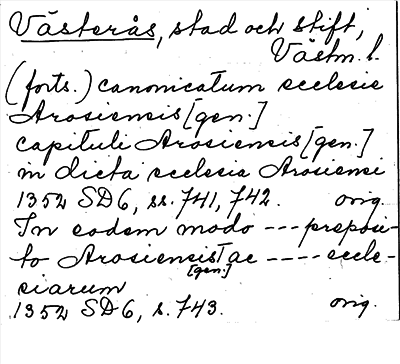 Västerås, stad och stift,
Västm. l.
(forts.) canonicatum ecclesie
Arosiensis [gen.]
capituli Arosiensis [gen.]
in dicta ecclesia Arosiensi
1352 SD6, ss. 741, 742. orig.
In eodem modo --- preposi-
to Arosiensis [gen.] ac ---- eccle-
siarum
1352 SD6, s. 743. orig.